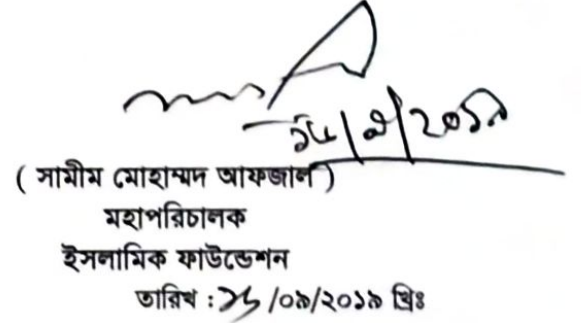 ( সামীম মোহাম্মদ আফজাল )
মহাপরিচালক
ইসলামিক ফাউন্ডেশন
তারিখ : /০৯/২০১৯ খ্রিঃ